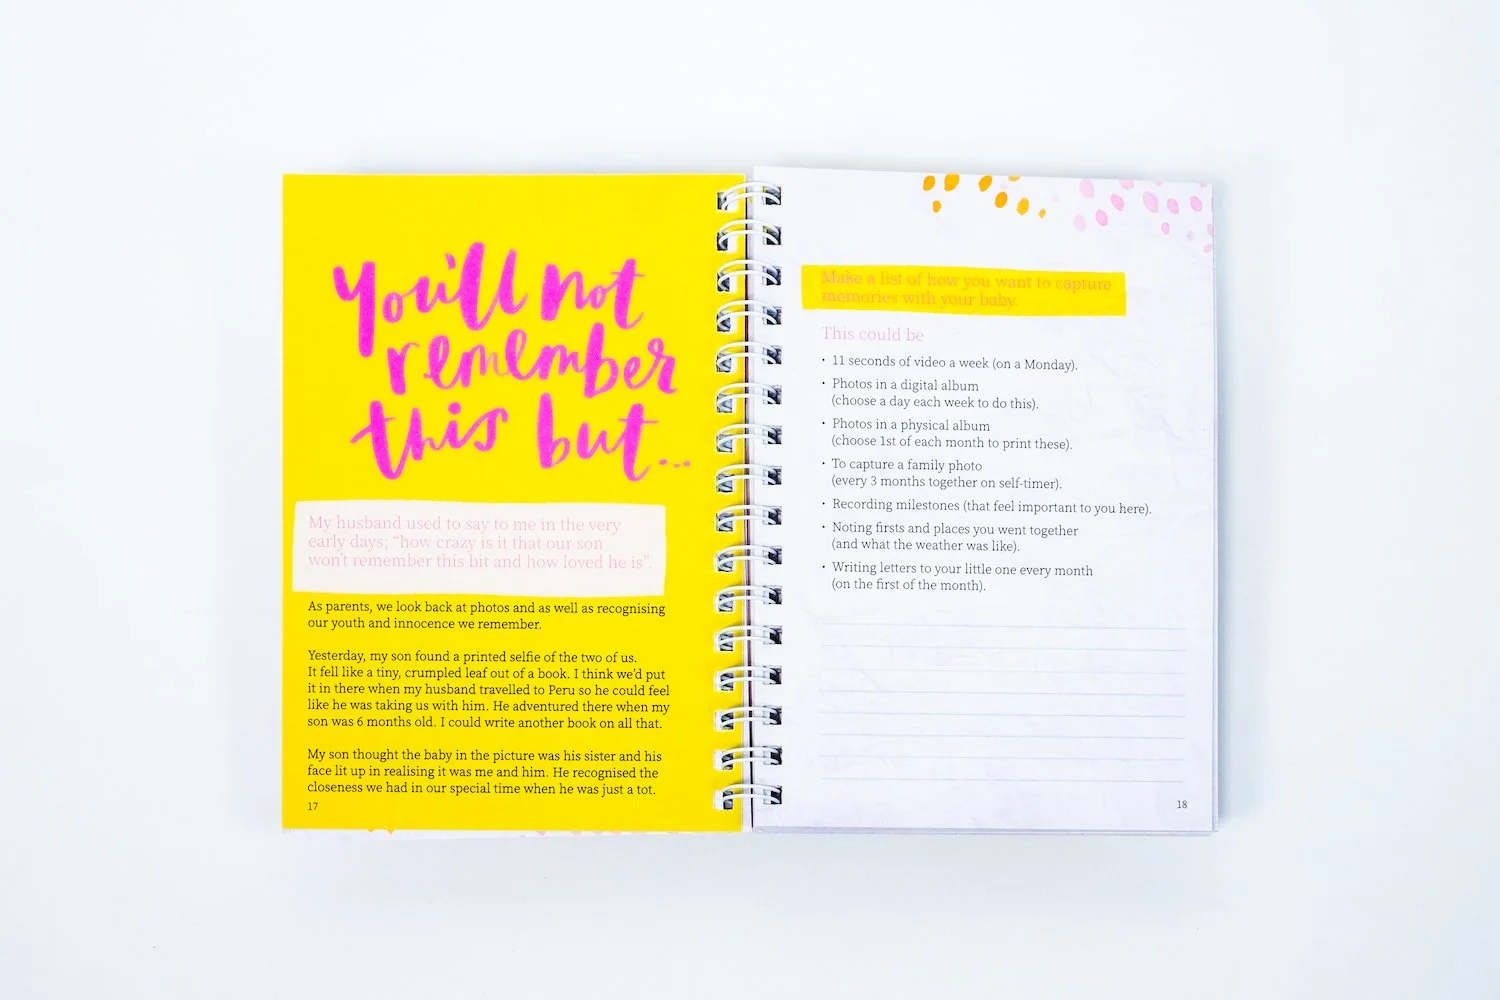 You'll not
remember
this but...
My husband used to say to me in the very
early days; “how crazy is it that our son
won't remember this bit and how loved he is”.
As parents, we look back at photos and as well as recognising
our youth and innocence we remember.
Yesterday, my son found a printed selfie of the two of us.
It fell like a tiny, crumpled leaf out of a book. I think we'd put
it in there when my husband travelled to Peru so he could feel
like he was taking us with him. He adventured there when my
son was 6 months old. I could write another book on all that.
My son thought the baby in the picture was his sister and his
face lit up in realising it was me and him. He recognised the
closeness we had in our special time when he was just a tot.
17
Make a list of how you want to capture
memories with your baby.
This could be
• 11 seconds of video a week (on a Monday).
• Photos in a digital album
(choose a day each week to do this).
• Photos in a physical album
(choose 1st of each month to print these).
• To capture a family photo
(every 3 months together on self-timer).
• Recording milestones (that feel important to you here).
• Noting firsts and places you went together
(and what the weather was like).
• Writing letters to your little one every month
(on the first of the month).
18